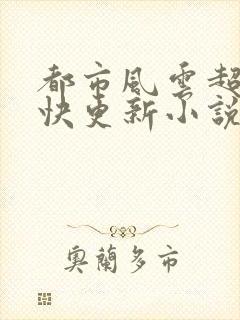 都市風雲超
快更新小說
奧蘭多市